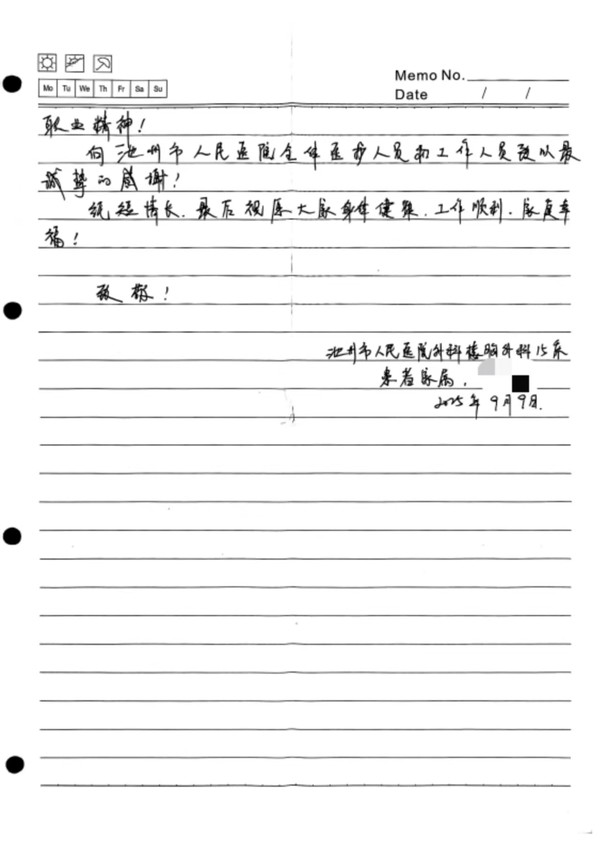 Memo No.
Mo Tu We Th Fr Sa Su
Date / /
职业精神！
向池州市人民医院全体医护人员和工作人员致以最
诚挚的感谢！
纸短情长，最后祝愿大家身体健康、工作顺利、家庭幸
福！
致敬！
池州市人民医院外科楼胸外科15床
患者家属：
2025年9月9日